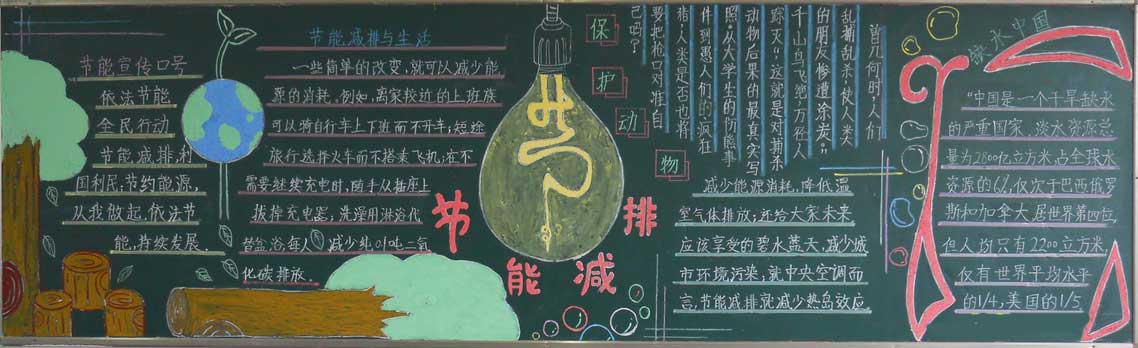 节能宣传口号
依法节能
全民行动
节能减排,利
国利民;节约能源,
从我做起,依法节
能,持续发展.
节能减排与生活
一些简单的改变,就可以减少能
源的消耗。例如,离家较近的上班族
可以骑自行车上下班而不开车;短途
旅行选择火车而不搭乘飞机;在不
需要继续充电时,随手从插座上
拔掉充电器;洗澡用淋浴代
替盆浴每人 减少纯0.1吨二氧
化碳排放.
节能减排
保护动物
曾几何时,人们
乱捕乱杀,使人类
的朋友惨遭涂炭。“
千山鸟飞绝,万径人
踪灭”,这就是对捕杀
动物后果的最真实写
照。从大学生的伤熊事
件到愚人们的疯狂
猎,人类是否也将
要把枪口对准自
己吗?
减少能源消耗,降低温
室气体排放;还给大家未来
应该享受的碧水蓝天,减少城
市环境污染;就中央空调而
言,节能减排就减少热岛效应.
缺水中国
“中国是一个干旱缺水
的严重国家。淡水资源总
量为2800亿立方米,占全球水
资源的6%,仅次于巴西俄罗
斯和加拿大,居世界第四位,
但人均只有2200立方米,
仅有世界平均水平
的1/4,美国的1/5